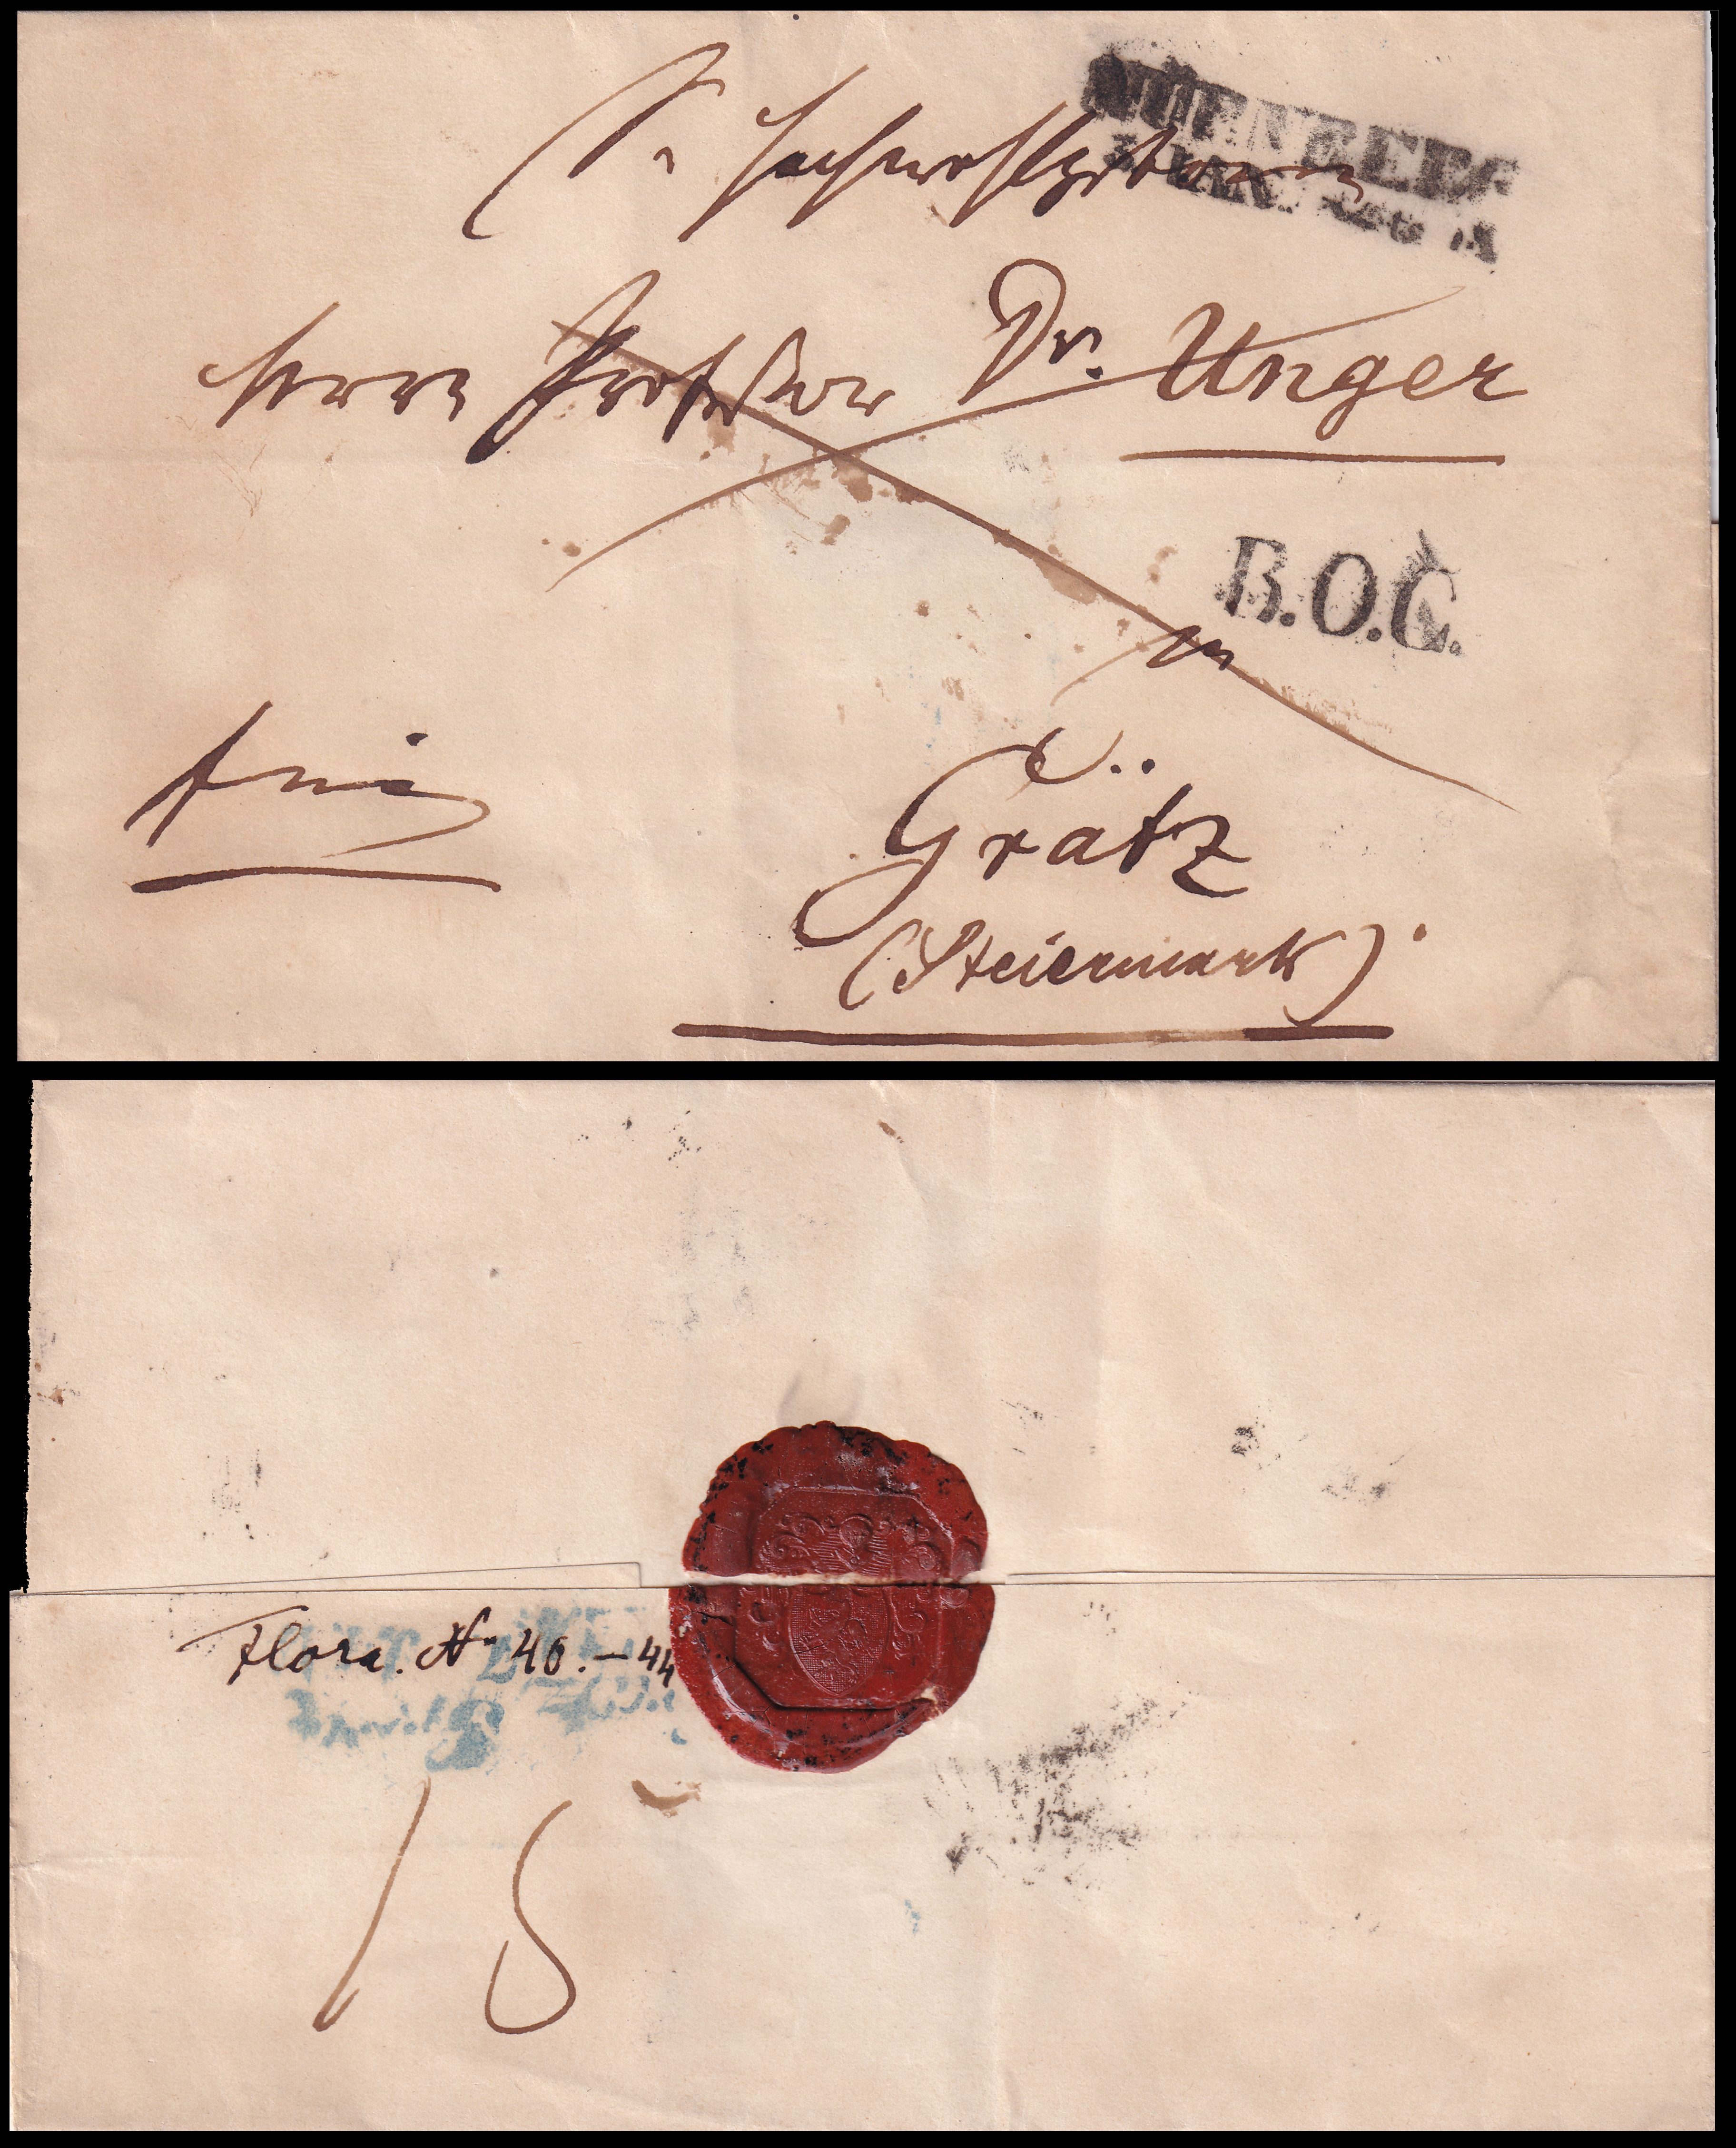 Sr Hochwohlgeboren
NÜRNBERG
Herrn Professor Dr. Unger
R.O.C.
in
frei
Grätz
(Steiermark).
Flora. No 40. – 44
18